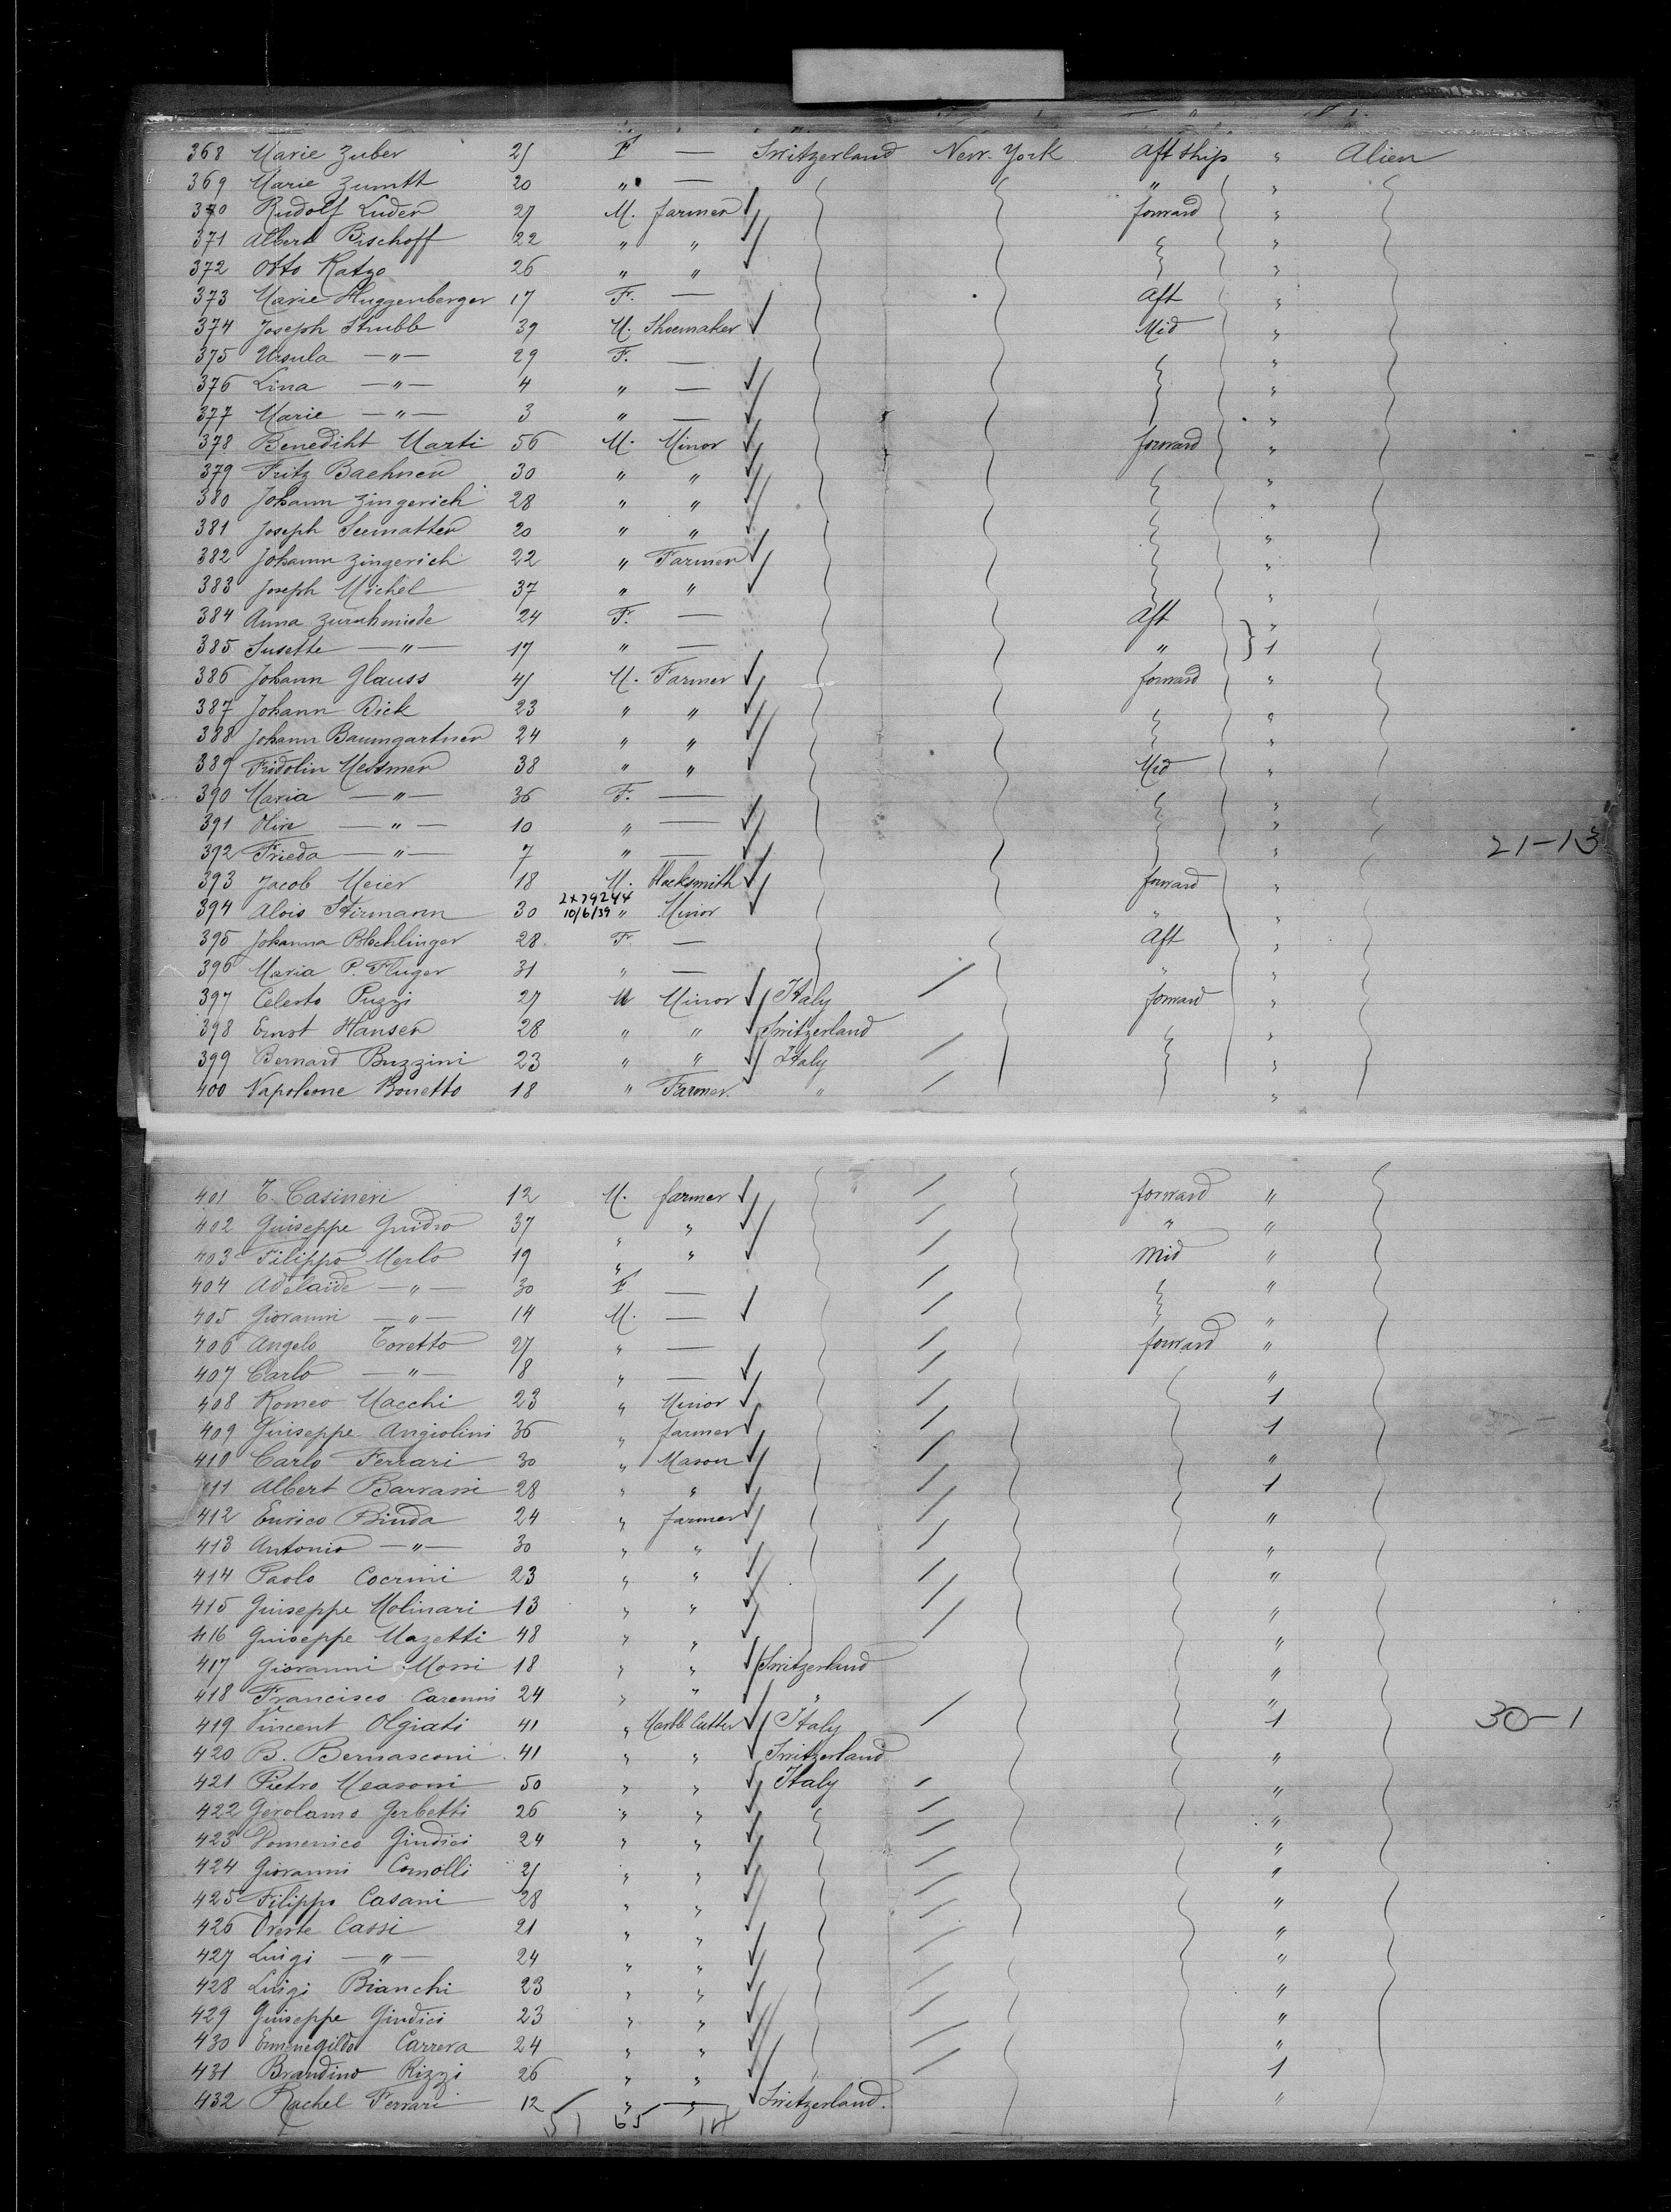 368 Marie Zuber 21 F — Switzerland New-York Aft ship " Alien
369 Marie Zumtt 20 " — " "
370 Rudolf Luder 27 M. farmer forward "
371 Albert Bischoff 22 " " "
372 Otto Katzo 26 " " "
373 Marie Huggenberger 17 F. — Aft "
374 Joseph Strubb 39 M. Shoemaker Mid "
375 Ursula —"— 29 F. — "
376 Lina —"— 4 " — "
377 Marie —"— 3 " — "
378 Benediht Marti 56 M. Minor forward "
379 Fritz Baehnen 30 " " "
380 Johann Zingerich 28 " " "
381 Joseph Seematter 20 " " "
382 Johann Zingerich 22 " Farmer "
383 Joseph Michel 37 " " "
384 Anna Zurschmiede 24 F. — Aft "
385 Susette —"— 17 " — " } 1
386 Johann Glauss 41 M. Farmer forward "
387 Johann Dick 23 " " "
388 Johann Baumgartner 24 " " "
389 Fridolin Messmer 38 " " Mid "
390 Maria —"— 36 F. — "
391 Olive —"— 10 " — "
392 Frieda —"— 7 " — " 21-13
393 Jacob Meier 18 M. Blacksmith forward "
2x79244
394 Alois Stirmann 30 10/6/39 " Minor " "
395 Johanna Blschlinger 28 F. — Aft "
396 Maria P. Fluger 31 " — " "
397 Celesto Puzzi 27 M Minor Italy forward "
398 Ernst Hauser 28 " " Switzerland "
399 Bernard Buzzini 23 " " Italy "
400 Napoleone Bonetto 18 " Farmer. " "
401 T. Casineri 12 M. farmer forward "
402 Guiseppe Guidro 37 " " " "
403 Filippo Merlo 19 " " Mid "
404 Adelaide —"— 30 F — "
405 Giovanni —"— 14 M. — "
406 Angelo Toretto 27 " — forward "
407 Carlo —"— 18 " — "
408 Romeo Macchi 23 " Minor 1
409 Guiseppe Angiolini 36 " farmer 1
410 Carlo Ferrari 30 " Mason "
411 Albert Barrassi 28 " " 1
412 Enrico Binda 24 " farmer "
413 Antonio —"— 30 " " "
414 Paolo Cocrini 23 " " "
415 Guiseppe Molinari 13 " " "
416 Guiseppe Mazetti 48 " " "
417 Giovanni Mossi 18 " " Switzerland "
418 Francisco Carenni 24 " " " "
419 Vincent Olgiati 41 " Marbl Cutter Italy 1 30-1
420 B. Bernasconi 41 " " Switzerland "
421 Pietro Measoni 50 " " Italy "
422 Gerolamo Gerbetti 26 " " "
423 Domenico Giudici 24 " " "
424 Giovanni Comolli 21 " " "
425 Filippo Casani 28 " " "
426 Oreste Cassi 21 " " "
427 Luigi —"— 24 " " "
428 Luigi Bianchi 23 " " "
429 Guiseppe Giudici 23 " " "
430 Ermenegildo Carrera 24 " " "
431 Brandino Rizzi 26 " " 1
432 Rachel Ferrari 12 " — Switzerland. "
51 65 14